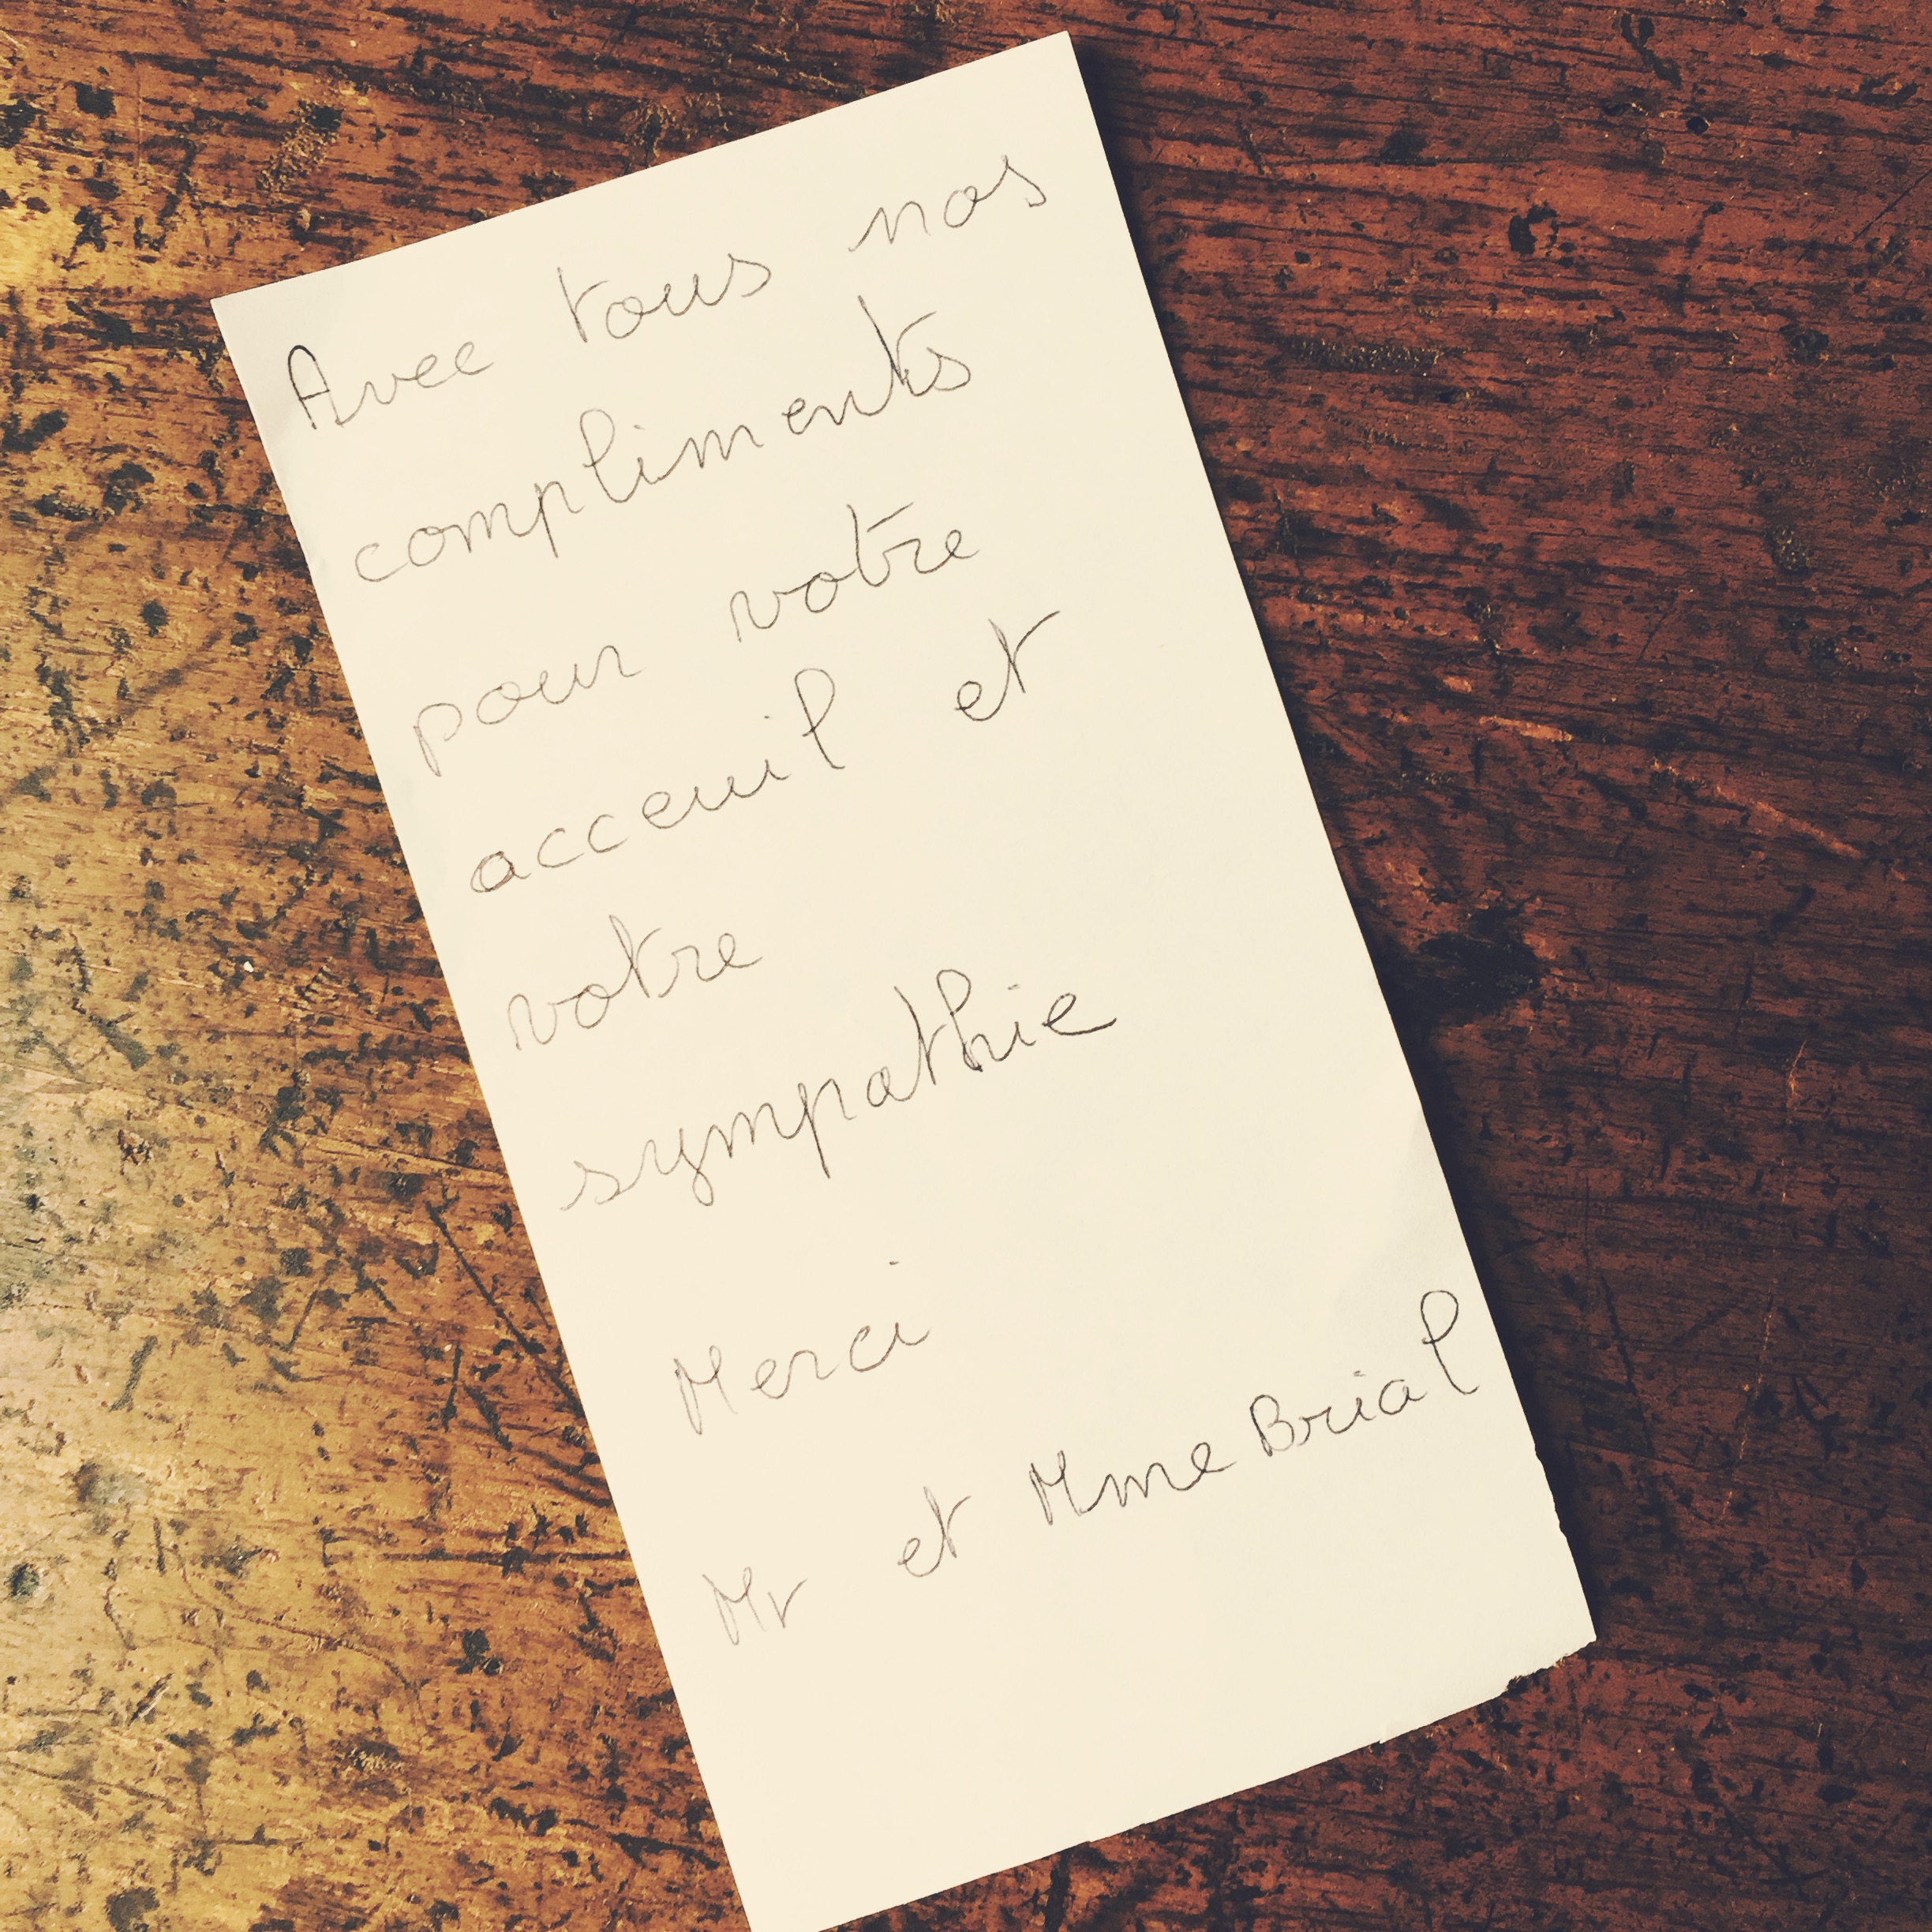 Avec tous nos
compliments
pour votre
acceuil et
votre
sympathie
Merci
Mr et Mme Brial